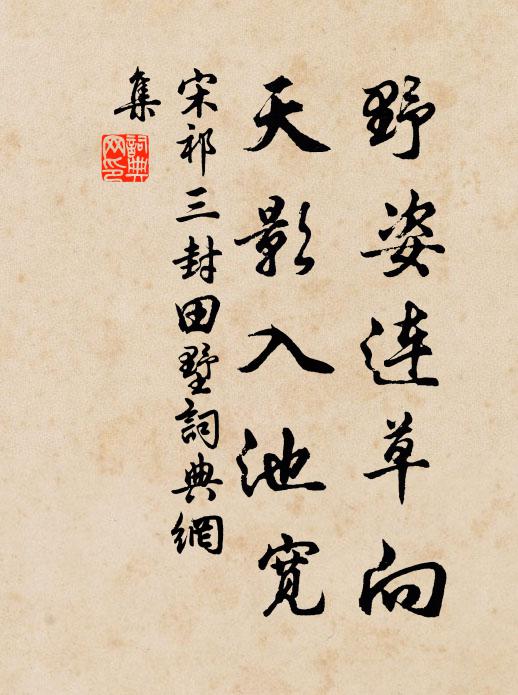 野姿連草向
天影入池寬
宋祁三封田墅詞典網
集
詞典
网印